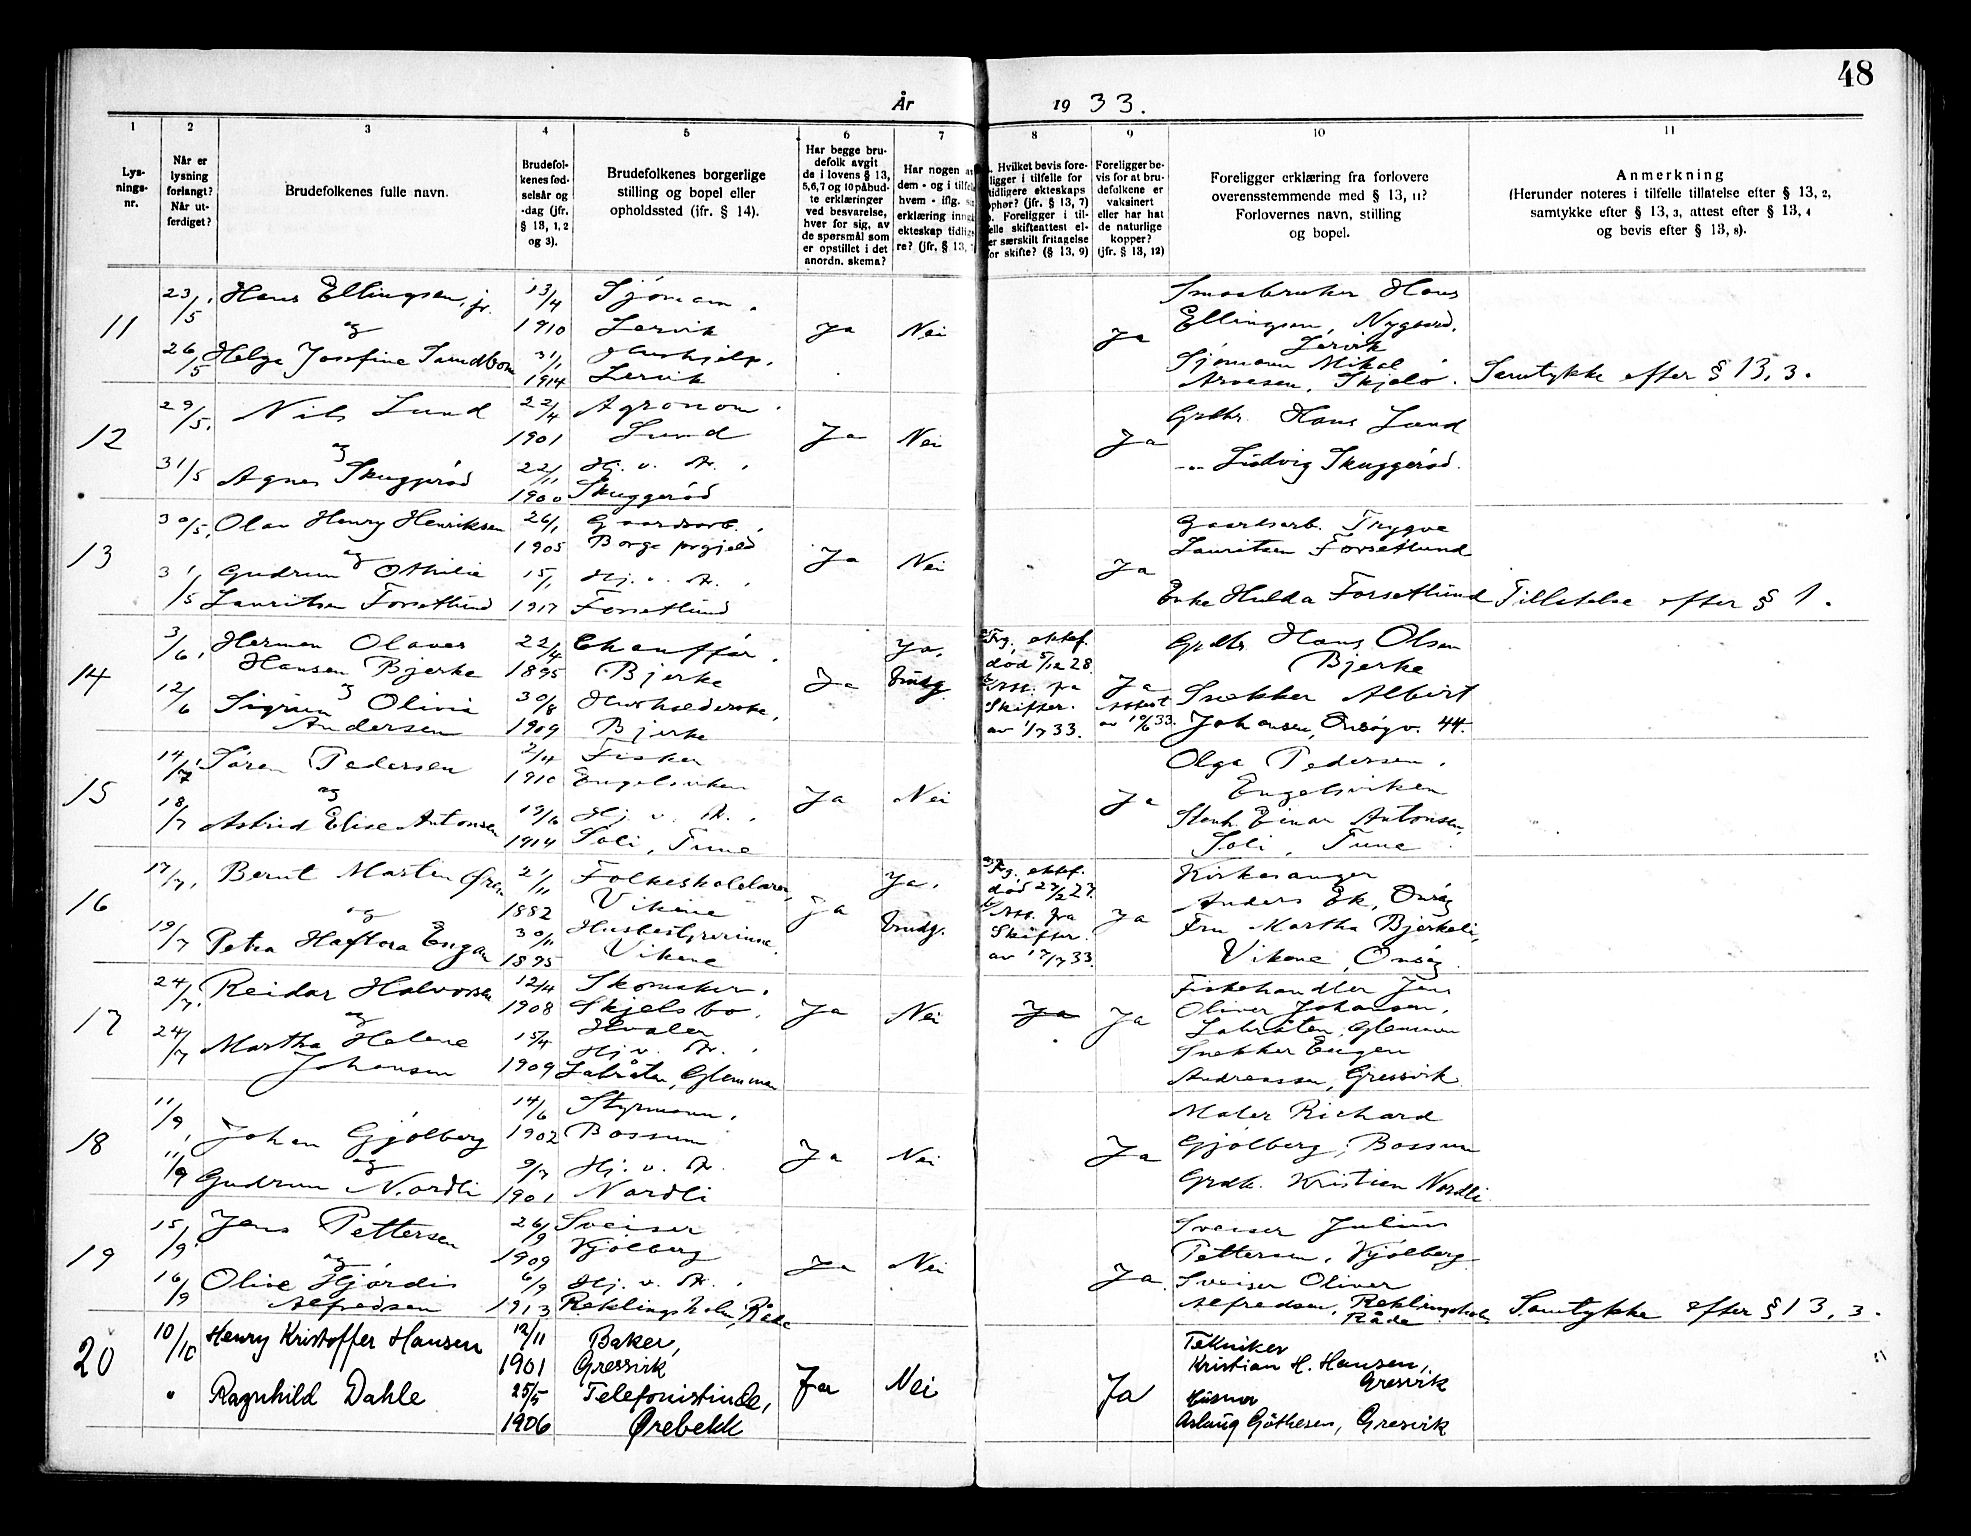 48
År 1933.
1 2 3 4 5 6 7 8 9 10 11
Lysnings-nr.
Når er lysning forlangt? Når utferdiget?
Brudefolkenes fulle navn.
Brudefolkenes fødselsår og -dag (jfr. § 13, 1, 2 og 3).
Brudefolkenes borgerlige stilling og bopel eller opholdssted (ifr. § 14).
Har begge brudefolk avgit de i lovens § 13, 5,6,7 og 10 påbudte erklæringer ved besvarelse, hver for sig, av de spørsmål som er opstillet i det anordn. skema?
Har nogen av dem - og i tilfelle hvem - iflg. erklæring inngått ekteskap tidligere? (jfr. § 13,
Hvilket bevis foreligger i tilfelle for tidligere ekteskaps ophør? (jfr. § 13, 7)
Foreligger i tilfelle skifteattest eller særskilt fritagelse for skifte? (§ 13, 9)
Foreligger bevis for at brudefolkene er vaksinert eller har hat de naturlige kopper? (jfr. § 13, 12)
Foreligger erklæring fra forlovere overensstemmende med § 13, 11? Forlovernes navn, stilling og bopel.
Anmerkning
(Herunder noteres i tilfelle tillatelse efter § 13, 2, samtykke efter § 13, 3, attest efter § 13, 4 og bevis efter § 13, 8).
11
23/5.
26/5
Hans Ellingsen, jr.
og
Helga Josefine Sandbom
13/4
1910
31/1
1914
Sjømann.
Lervik
Hushjelp.
Lervik
Ja
Nei
Ja
Smaabruker Hans
Ellingsen, Nygaard,
Lervik
Sjømann Mikal
Arvesen, Skjelø.
Samtykke efter § 13, 3.
12
29/5.
31/5
Nils Lund
og
Agnes Skuggerød
22/4
1901
22/11
1900
Agronom.
Lund
Hj. v. A.
Skuggerød
Ja
Nei
Ja
Grdbr. Hans Lund
-"- Ludvig Skuggerød.
13
30/5.
31/5
Olav Henry Henriksen
og
Gudrun Othilie
Lauritsen Forsetlund
26/1
1905
15/1
1917
Gaardsarb.
Borge prgjeld
Hj. v. A.
Forsetlund
Ja
Nei
Ja
Gaardsarb. Trygve
Lauritsen Forsetlund
Enke Hulda Forsetlund
Tillatelse efter § 1.
14
3/6.
12/6
Herman Olaves
Hansen Bjerke
og
Sigrun Olivia
Andersen
22/4
1895
30/8
1909
Chauffør.
Bjerke
Husholderske,
Bjerke
Ja
Ja.
Brudg.
Frg. ektef.
død 5/12 28
Att. fra
Skifter.
av 1/7 33.
Ja
Attest
av 10/6 33.
Grdbr. Hans Olsen
Bjerke
Snekker Albert
Johansen, Onsøyv. 44.
15
14/7.
18/7
Søren Pedersen
og
Astrid Elise Antonsen
2/4
1910
19/6
1914
Fisker
Engelsviken
Hj. v. A.
Soli, Tune
Ja
Nei
Ja
Olga Pedersen.
Engelsviken
Stenh. Einar Antonsen,
Soli, Tune
16
17/7.
19/7
Bernt Martin Ørn
og
Petra Haftora Engan
21/11
1882
30/1
1895
Folkeskolelærer,
Vikene
Husbestyrerinne.
Vikene
Ja
Ja.
Brudg.
Frg. ektef.
død 27/2 27.
Att. fra
Skifter.
av 17/7 33.
Ja
Kirkesanger
Anders Ek, Onsøy
Fru Martha Bjerkeli,
Vikene, Onsøy.
17
24/7.
24/7
Reidar Halvorsen
og
Martha Helene
Johansen
12/4
1908
15/4
1909
Skomaker.
Skjelsbo.
Hvaler
Hj. v. A.
Labråten, Glemmen
Ja
Nei
Ja
Ja
Fiskehandler Jens
Oliver Johansen,
Labråten, Glemmen
Snekker Eugen
Andreassen, Gressvik
18
11/9.
11/9
Johan Gjølberg
og
Gudrun Nordli
14/6
1902
9/7
1901
Styrmann.
Bossum
Hj. v. A.
Nordli
Ja
Nei
Ja
Maler Richard
Gjølberg, Bossum
Grdb. Kristian Nordli
19
15/9.
16/9
Jens Pettersen
og
Olive Hjørdis
Alfredsen
26/9
1909
6/9
1913
Sveiser
Kjølberg
Hj. v. A.
Reklingsholm, Råde
Ja
Nei
Ja
Sveiser Julius
Pettersen, Kjølberg
Sveiser Oliver
Alfredsen, Reklingsholm
Råde
Samtykke efter § 13, 3.
20
10/10
"
Henry Kristoffer Hansen
Ragnhild Dahle
12/11
1901
25/5
1906
Baker,
Gressvik
Telefonistinde,
Ørebekk
Ja
Nei
Ja
Tekniker
Kristian H. Hansen,
Gresvik
Husmor
Aslaug Göthesen, Gresvik